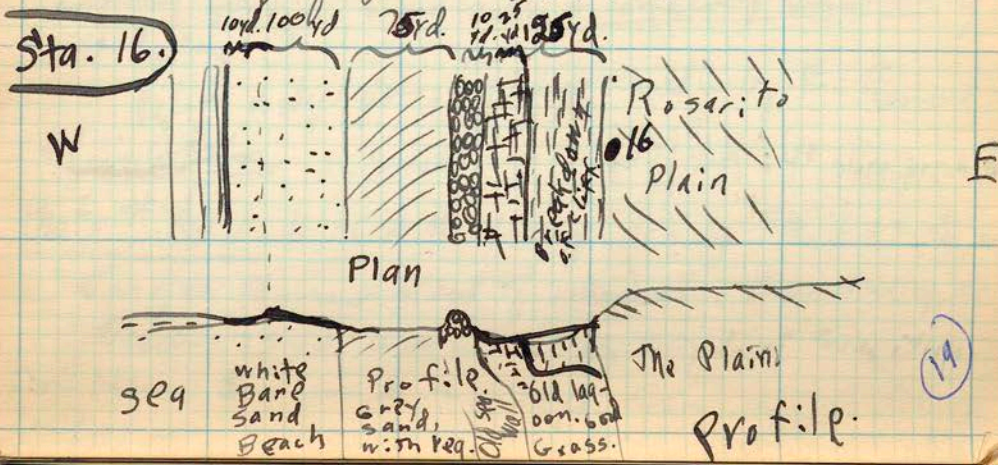 Sta. 16.
10yd. 100 yd 75yd. 10 yd. 25 yd. 125yd.
W
E
Rosarito
16
Plain
of cliff
Plan
sea
white
Bare
Sand
Beach
Profile.
Grey
sand,
with veg.
Old sea
wall
Old lag-
oon.
Grass.
The Plain.
Profile.
19